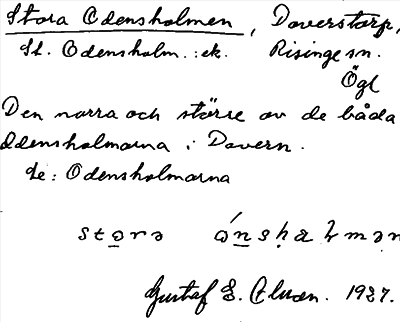 Stora Odensholmen, Doverstorp,
St. Odensholm. :ek. Risinge sn.
Ögl
Den norra och större av de båda
Odensholmarna i Dovern.
Se: Odensholmarna
Gustaf E. 1927.